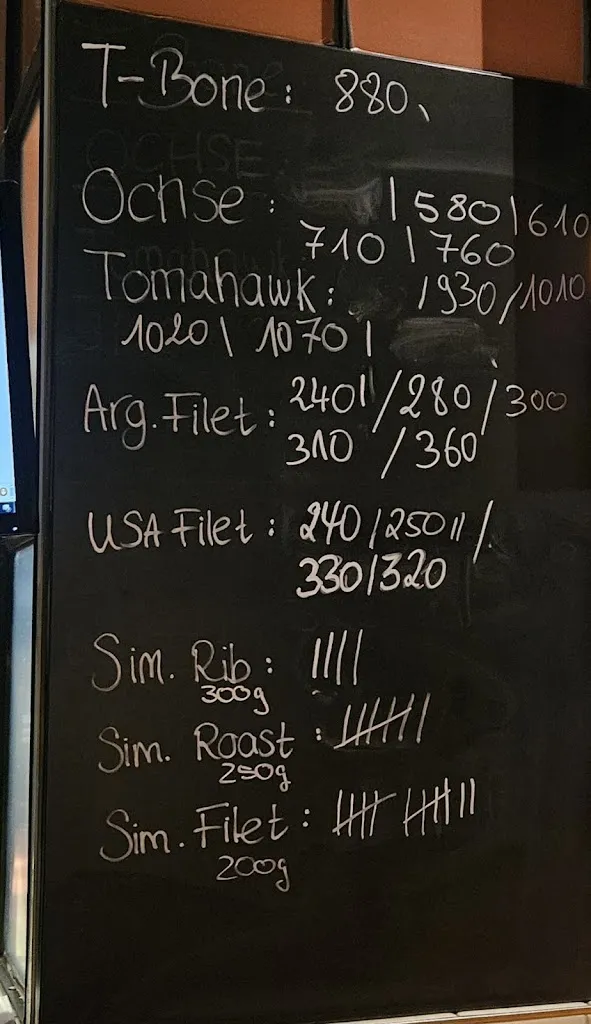 T-Bone: 880,
Ochse: | 580 | 610
710 | 760
Tomahawk: / 930 / 1010
1020 \ 1070 |
Arg. Filet: 240 | / 280 / 300
310 / 360
USA Filet: 240 / 250 || /
330 / 320
Sim. Rib: ||||
300g
Sim. Roast: |||| |
250g
Sim. Filet: |||| |||| ||
200g